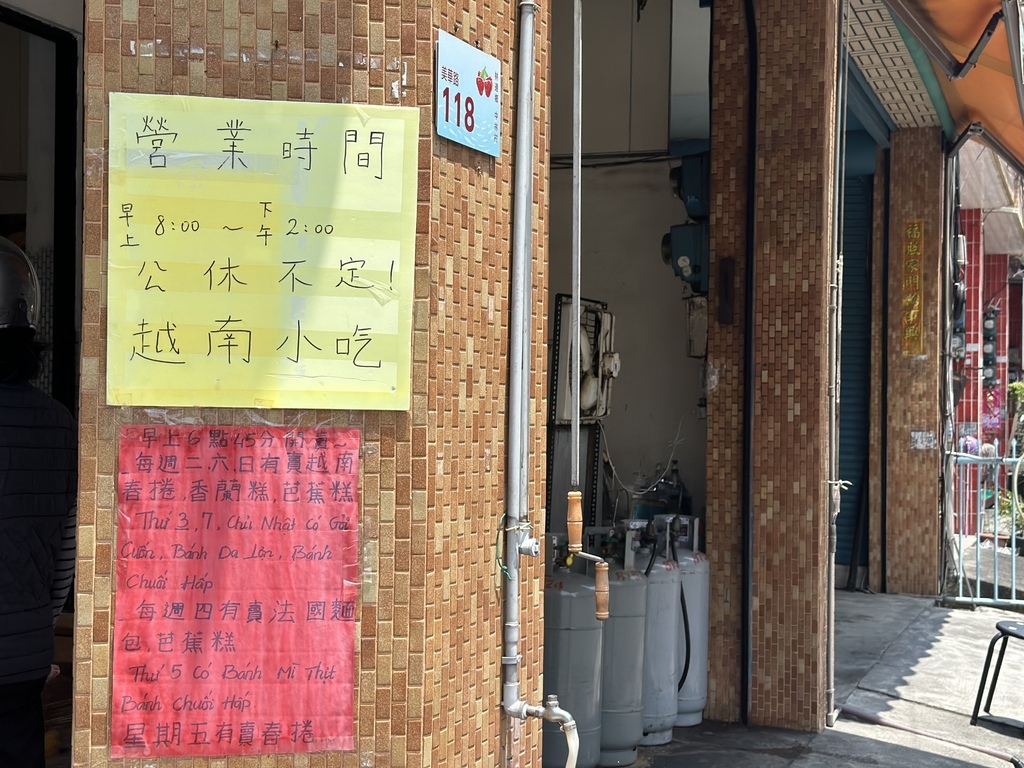 營業時間
早上 8:00 ~ 下午 2:00
公休不定!
越南小吃
早上6點45分開賣~
每週二.六.日有賣越南
春捲.香蘭糕.芭蕉糕
Thứ 3,7, Chủ Nhật Có Gỏi
Cuốn, Bánh Da Lợn, Bánh
Chuối Hấp
每週四有賣法國麵
包.芭蕉糕
Thứ 5 Có Bánh Mì Thịt
Bánh Chuối Hấp
星期五有賣春捲
美華路
118